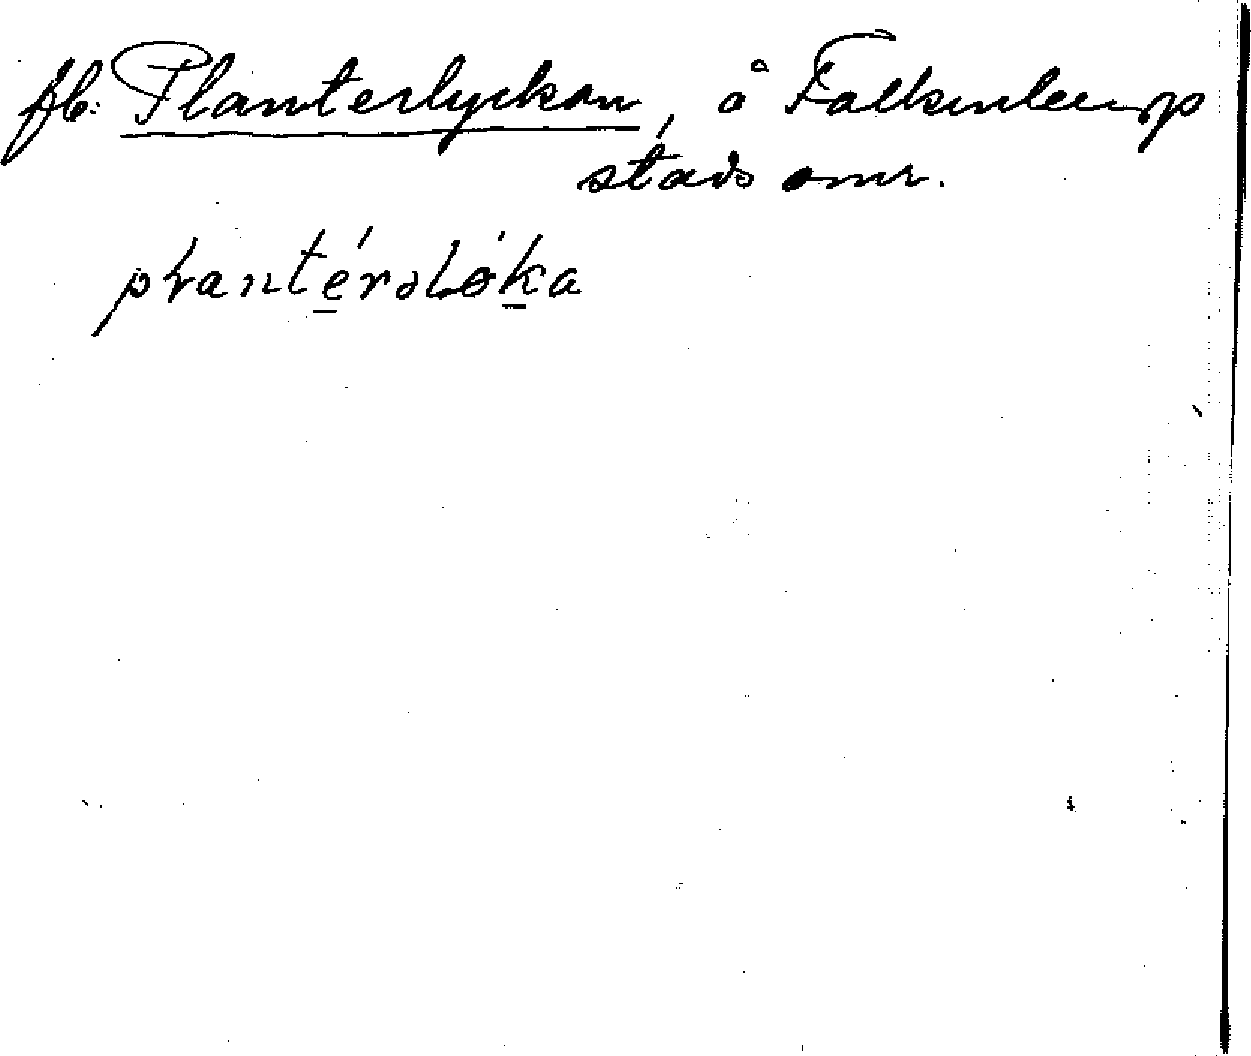 fb: Planterlyckan, å Falkenbergs
stads omr.
plantérəlø̀ka